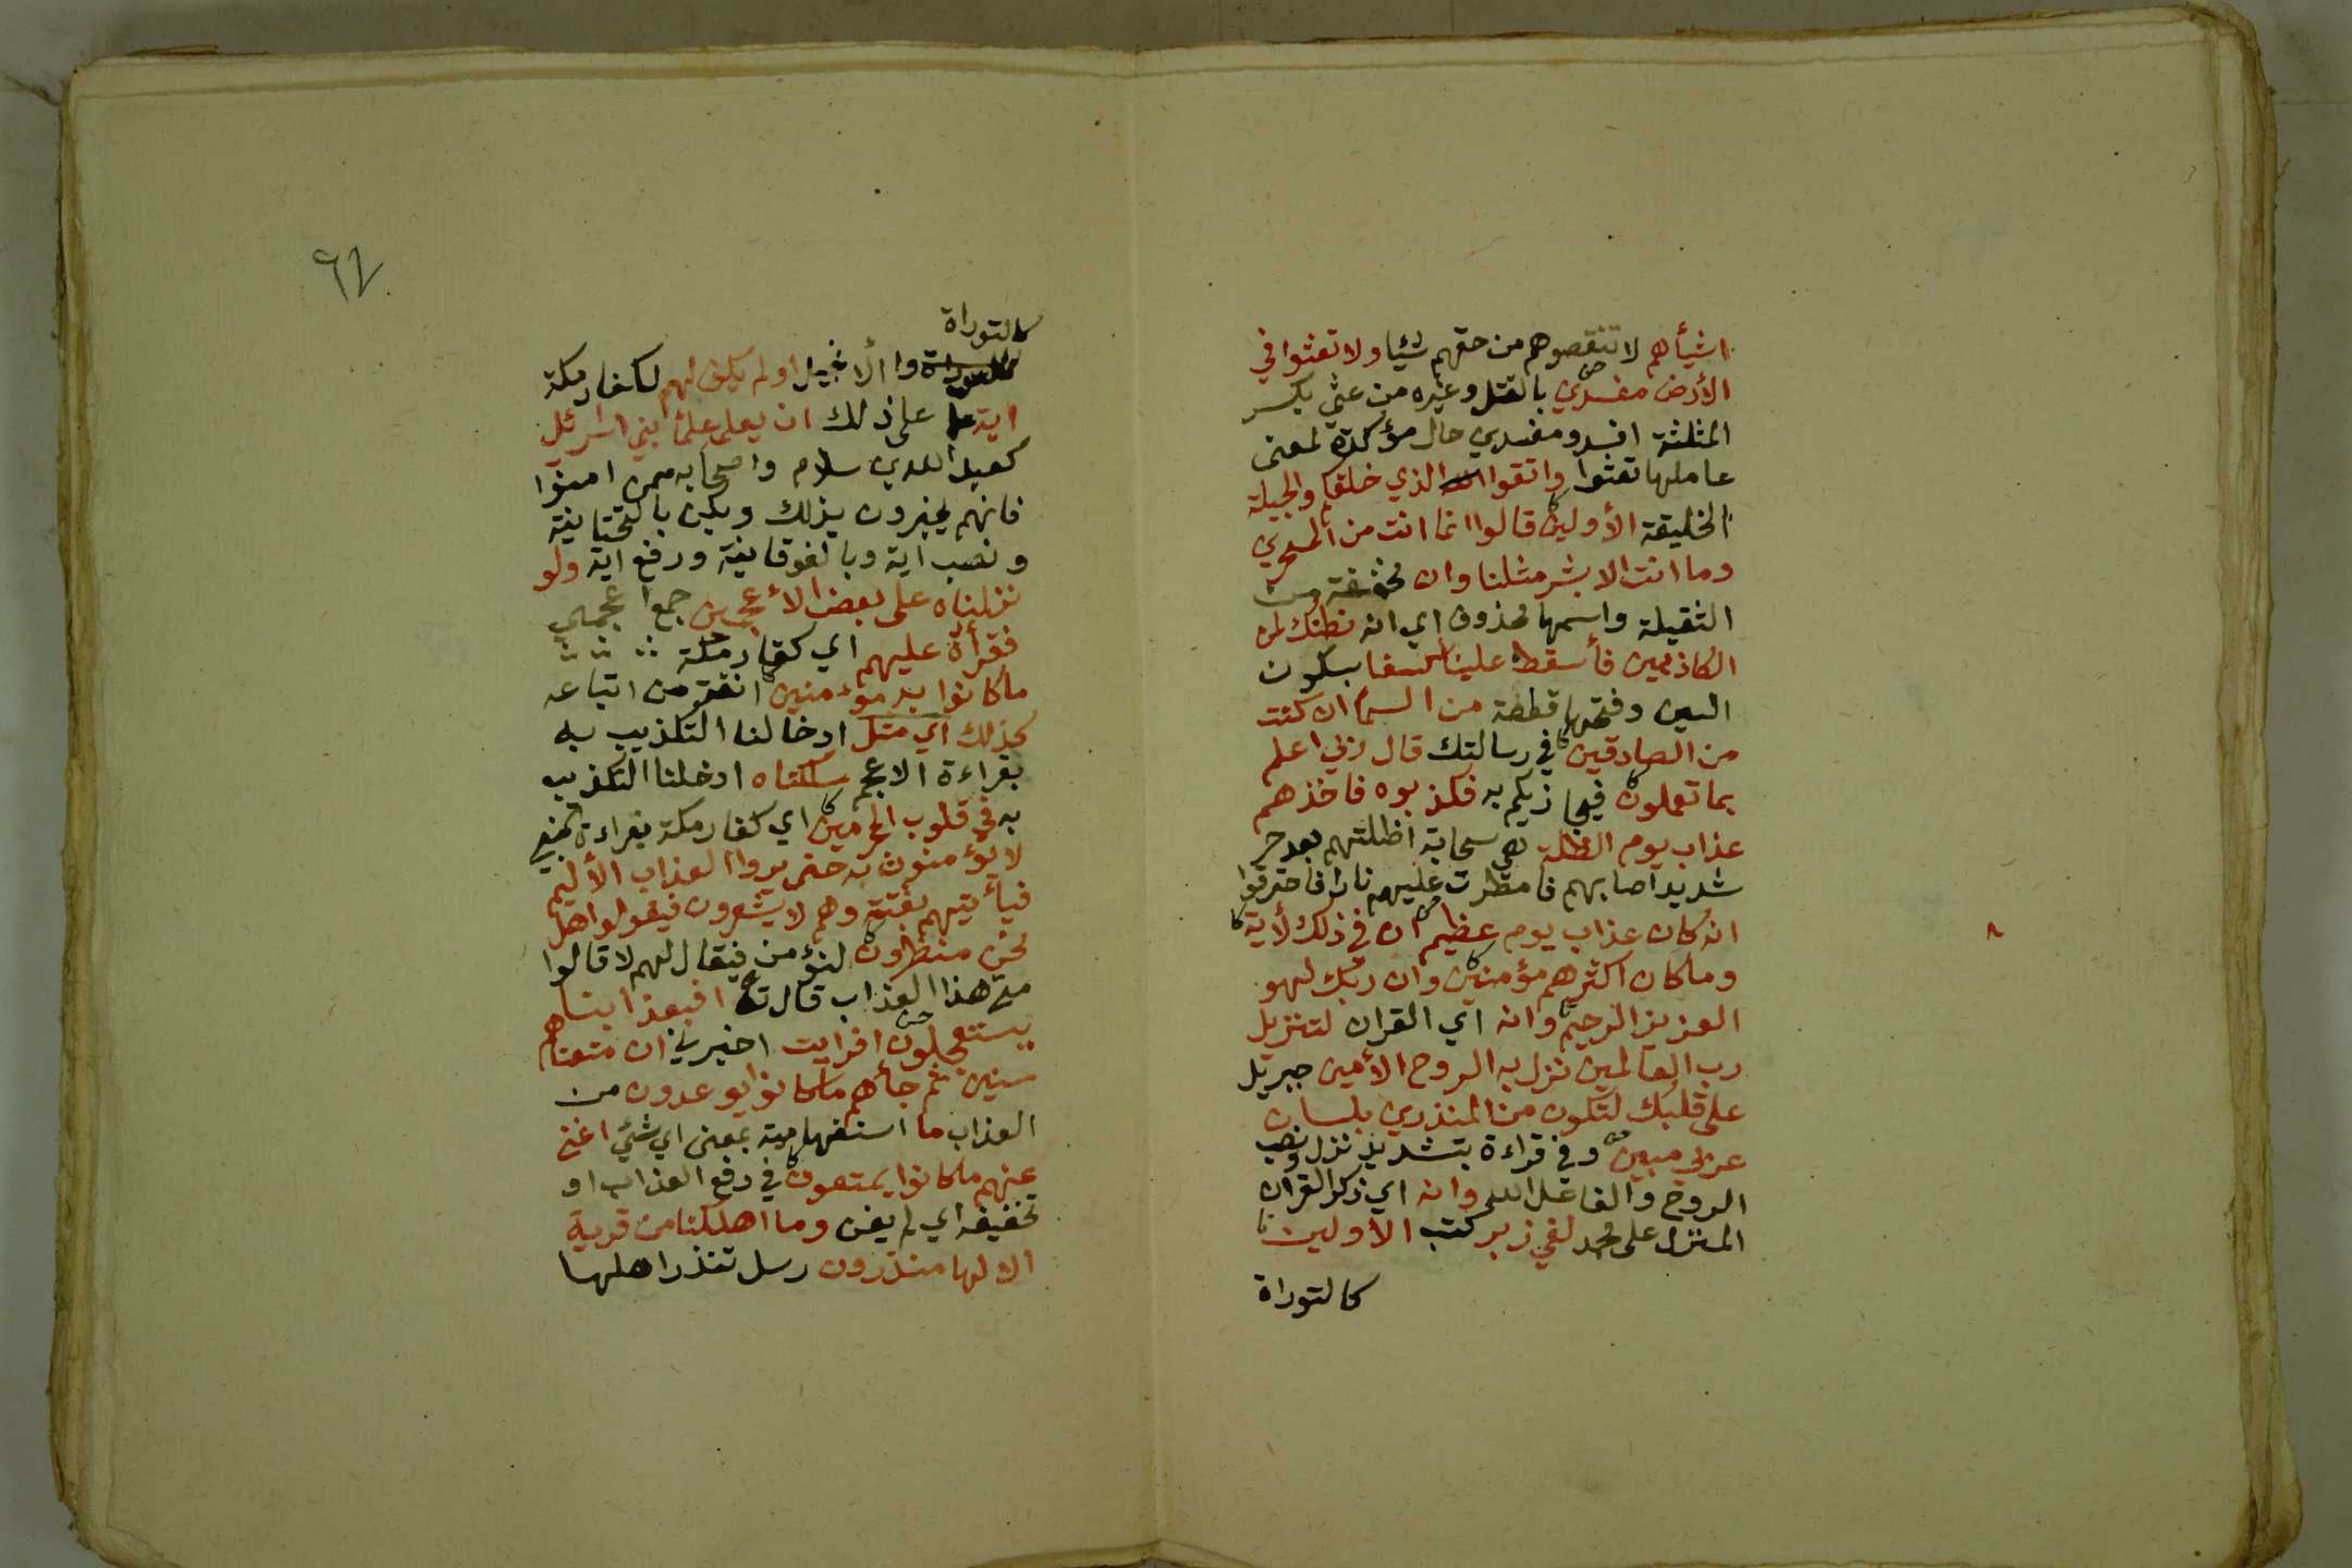 اشيأهم لا تنقصوهم من حقهم شيئا ولا تعثوا في
الأرض مفسدين بالقتل وغيره من عثي بكسر
المثلثة افسد ومفسدين حال مؤكدة لمعنى
عاملها تعثوا واتقوا الذي خلقكم والجبلة
الخليقة الأولين قالوا انما انت من المسحرين
وما انت الا بشر مثلنا وان مخففة من
الثقيلة واسمها محذوف اي انه نظنك لمن
الكاذبين فأسقط علينا كسفا بسكون
السين وفتحها قطعة من السما ان كنت
من الصادقين في رسالتك قال ربي اعلم
بما تعملون فيجازيكم به فكذبوه فاخذهم
عذاب يوم الظلة هي سحابة اظلتهم بعد حر
شديد اصابهم فامطرت عليهم نارا فاحترقوا
انه كان عذاب يوم عظيم ان في ذلك لأية
وما كان اكثرهم مؤمنين وان ربك لهو
العزيز الرحيم وانه اي القران لتنزيل
رب العالمين نزل به الروح الأمين جبريل
على قلبك لتكون من المنذرين بلسان
عربي مبين وفي قراءة بتشديد نزل ونصب
الروح والفاعل الله وانه اي ذكر القران
المنزل على محمد لفي زبر كتب الأولين
كالتوراة
٨
٩٧
كالتوراة
والانجيل اولم يكن لهم لكفار مكة
اية على ذلك ان يعلمه علمأ بني اسرئل
كعبد الله بن سلام واصحابه ممن امنوا
فانهم يخبرون بذلك ويكن بالتحتانية
ونصب اية وبالفوقانية ورفع اية ولو
نزلناه على بعض الأعجمين جمع اعجمي
فقرأه عليهم اي كفار مكة
ما كانوا به مؤمنين انفة من اتباعه
كذلك اي مثل ادخالنا التكذيب به
بقراءة الاعجم سلكناه ادخلنا التكذيب
به في قلوب المجرمين اي كفار مكة بقراءة النبي
لا يؤمنون به حتى يروا العذاب الأليم
فيأتيهم بغتة وهم لا يشعرون فيقولوا هل
نحن منظرون لنؤمن فيقال لهم لا قالوا
متى هذا العذاب قال تع افبعذابنا
يستعجلون افرايت اخبرني ان متعناهم
سنين ثم جأهم ما كانوا يوعدون من
العذاب ما استفهامية بمعنى اي شئي اغنى
عنهم ما كانوا يمتعون في دفع العذاب او
تخفيفه اي لم يغن وما اهلكنا من قرية
الا لها منذرون رسل تنذر اهلها